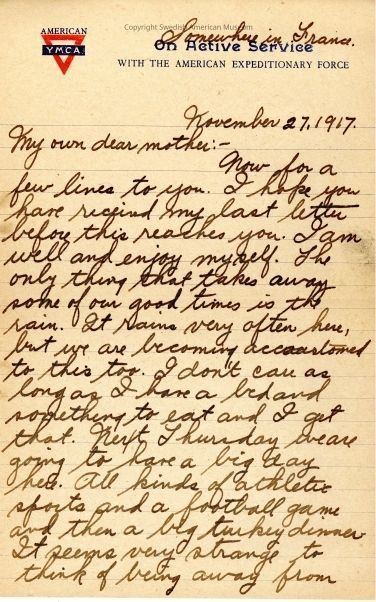 Copyright Swedish American Museum
AMERICAN
YMCA
Somewhere in France.
On Active Service
WITH THE AMERICAN EXPEDITIONARY FORCE
November 27, 1917.
My own dear mother:-
Now for a
few lines to you. I hope you
have recived my last letter
before this reaches you. I am
well and enjoy myself. The
only thing that takes away
some of our good times is the
rain. It rains very often here,
but we are becoming accustomed
to this too. I don't care as
long as I have a bed and
something to eat and I get
that. Next Thursday we are
going to have a big day
here. All kinds of athletic
sports and a football game
and then a big turkey dinner
It seems very strange to
think of being away from